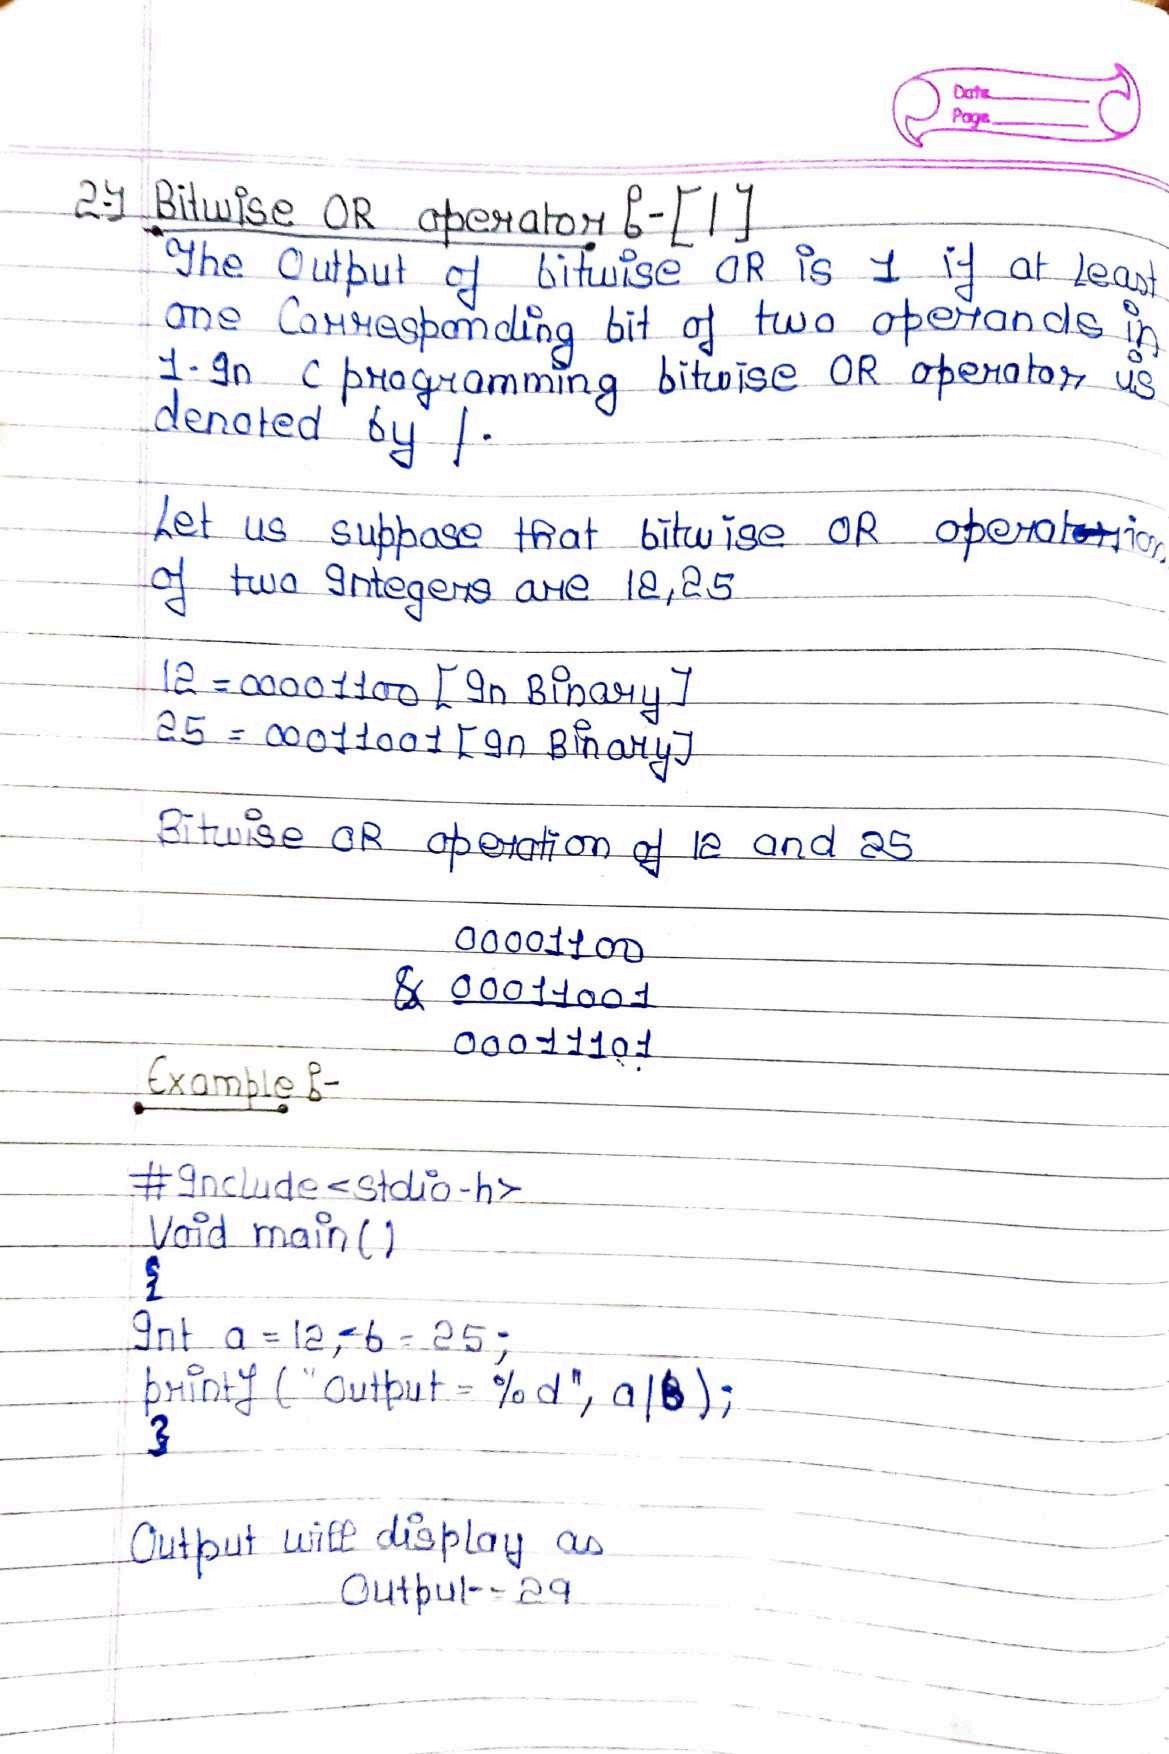 Date
Page
2-) Bitwise OR operator :- [|]
The Output of bitwise OR is 1 if at Least
one Corresponding bit of two operands in
1. In C programming bitwise OR operator is
denoted by |.
Let us suppose that bitwise OR operation
of two Integers are 12,25
12 = 00001100 [In Binary]
25 = 00011001 [In Binary]
Bitwise OR operation of 12 and 25
00001100
& 00011001
00011101
Example :-
#Include<stdio-h>
Void main()
{
Int a = 12, b = 25;
printf ("Output = %d", a|b);
}
Output will display as
Output - - 29